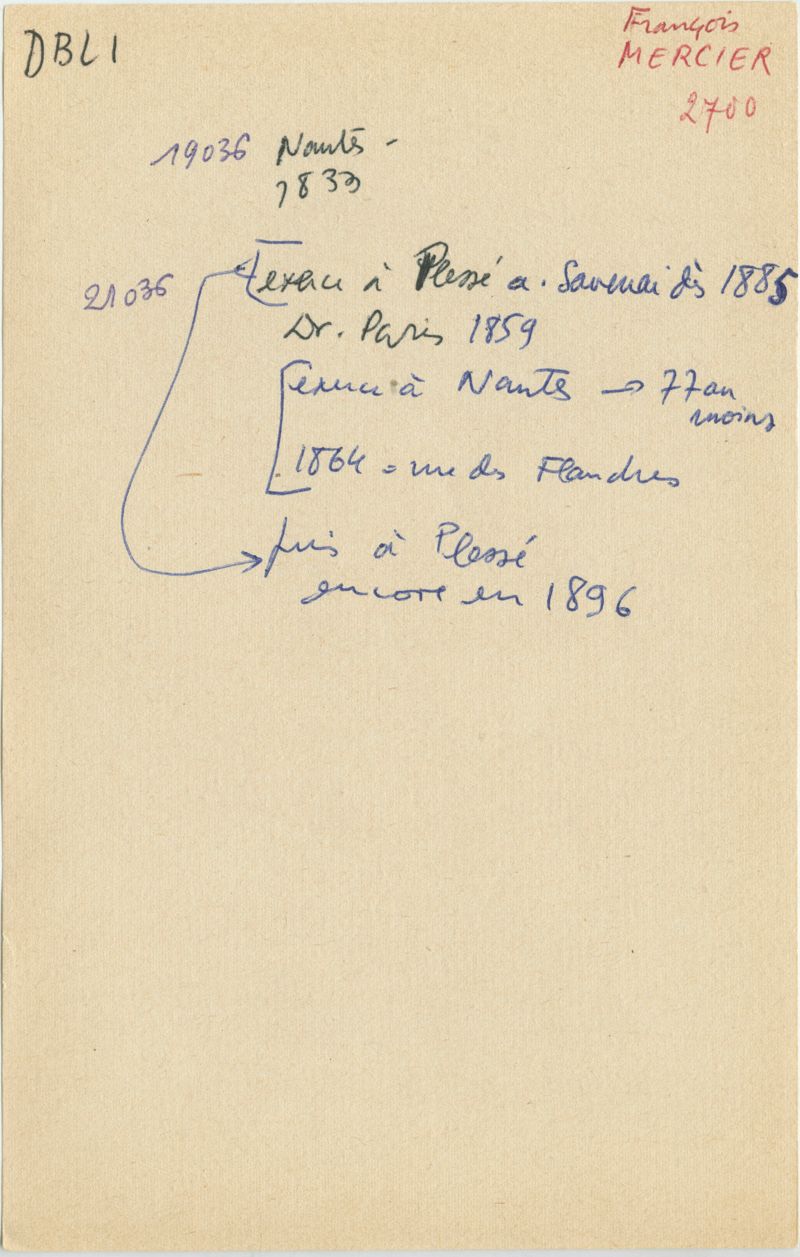 DBLI
François
MERCIER
2700
19036 Nantes -
1833
21036 exerce à Plessé a. Savenai dès 1885
Dr. Paris 1859
exerce à Nantes → 77 au
moins
1864 = rue des Flandres
puis à Plessé
encore en 1896